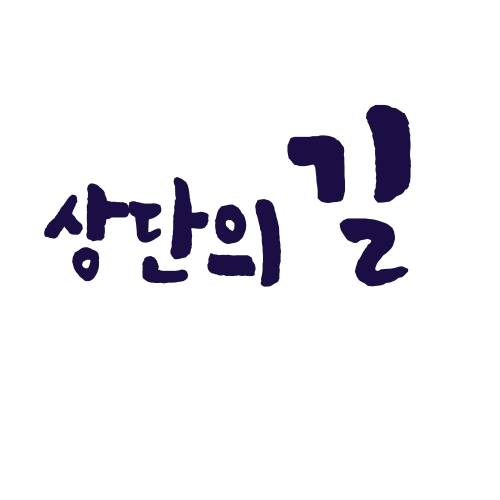 상단의 길